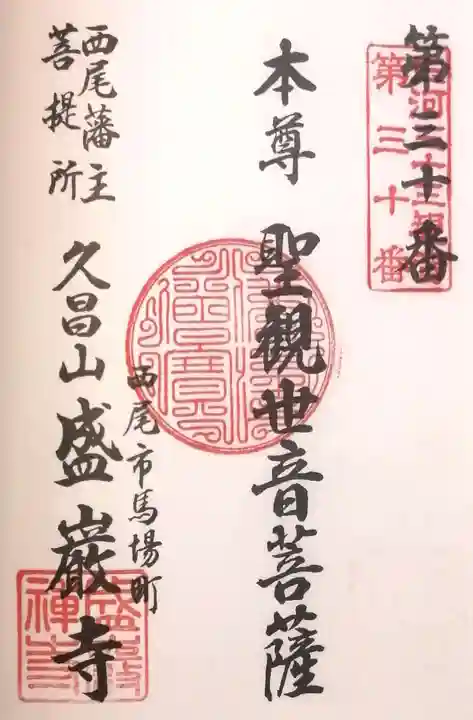 第三十番
第三十番
本尊 聖観世音菩薩
西尾藩主
菩提所
西尾市馬場町
久昌山 盛巌寺